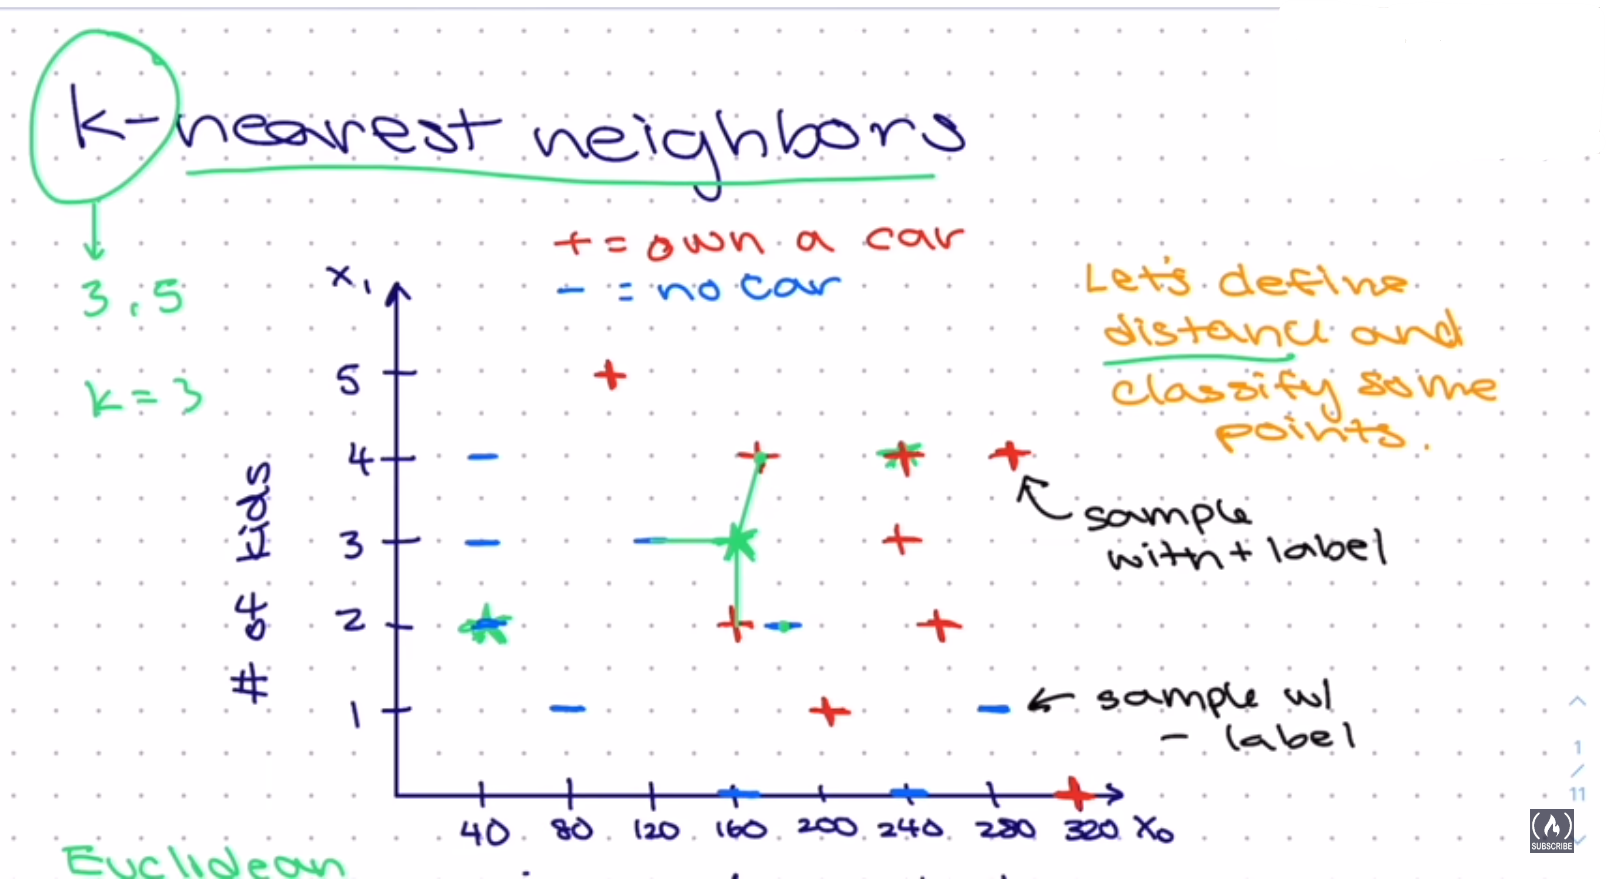 k-nearest neighbors
+ = own a car
- = no car
3, 5
k = 3
Let's define
distance and
classify some
points.
x₁
5
4
3
2
1
# of kids
sample
with + label
sample w/
- label
40 80 120 160 200 240 280 320 x₀
Euclidean
1
/
11
SUBSCRIBE